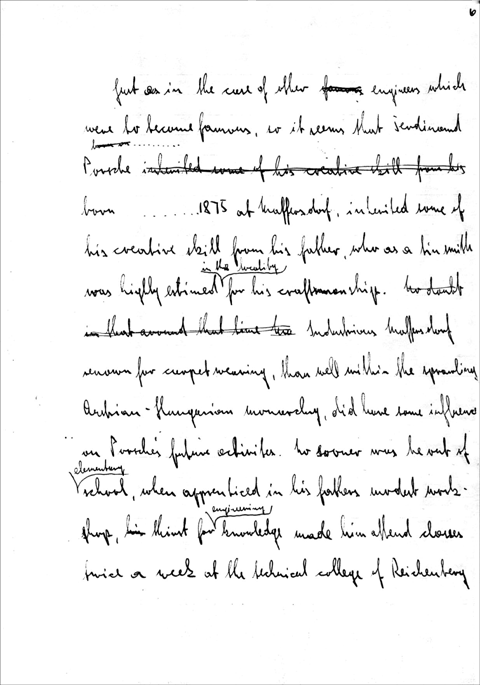 6
Just as in the case of other famous engineers which
were to become famous, so it seems that Ferdinand
Porsche inherited some of his creative skill from his
born ......... 1875 at Maffersdorf, inherited some of
his creative skill from his father, who as a tin smith
in the locality
was highly estimed for his craftsmanship. No doubt
in that around that time was Industrious Maffersdorf
renown for carpet weaving, than well within the sprawling
Austrian-Hungarian monarchy, did have some influence
on Porsche's future activites. No sooner was he out of
elementary
school, when apprenticed in his fathers modest work-
engineering
shop, his thirst for knowledge made him attend classes
twice a week at the technical college of Reichenberg